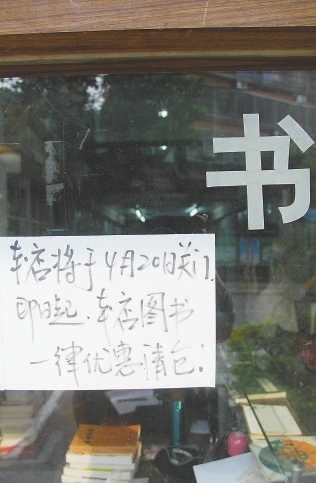 书
本店将于4月20日关门.
即日起.本店图书
一律优惠清仓!